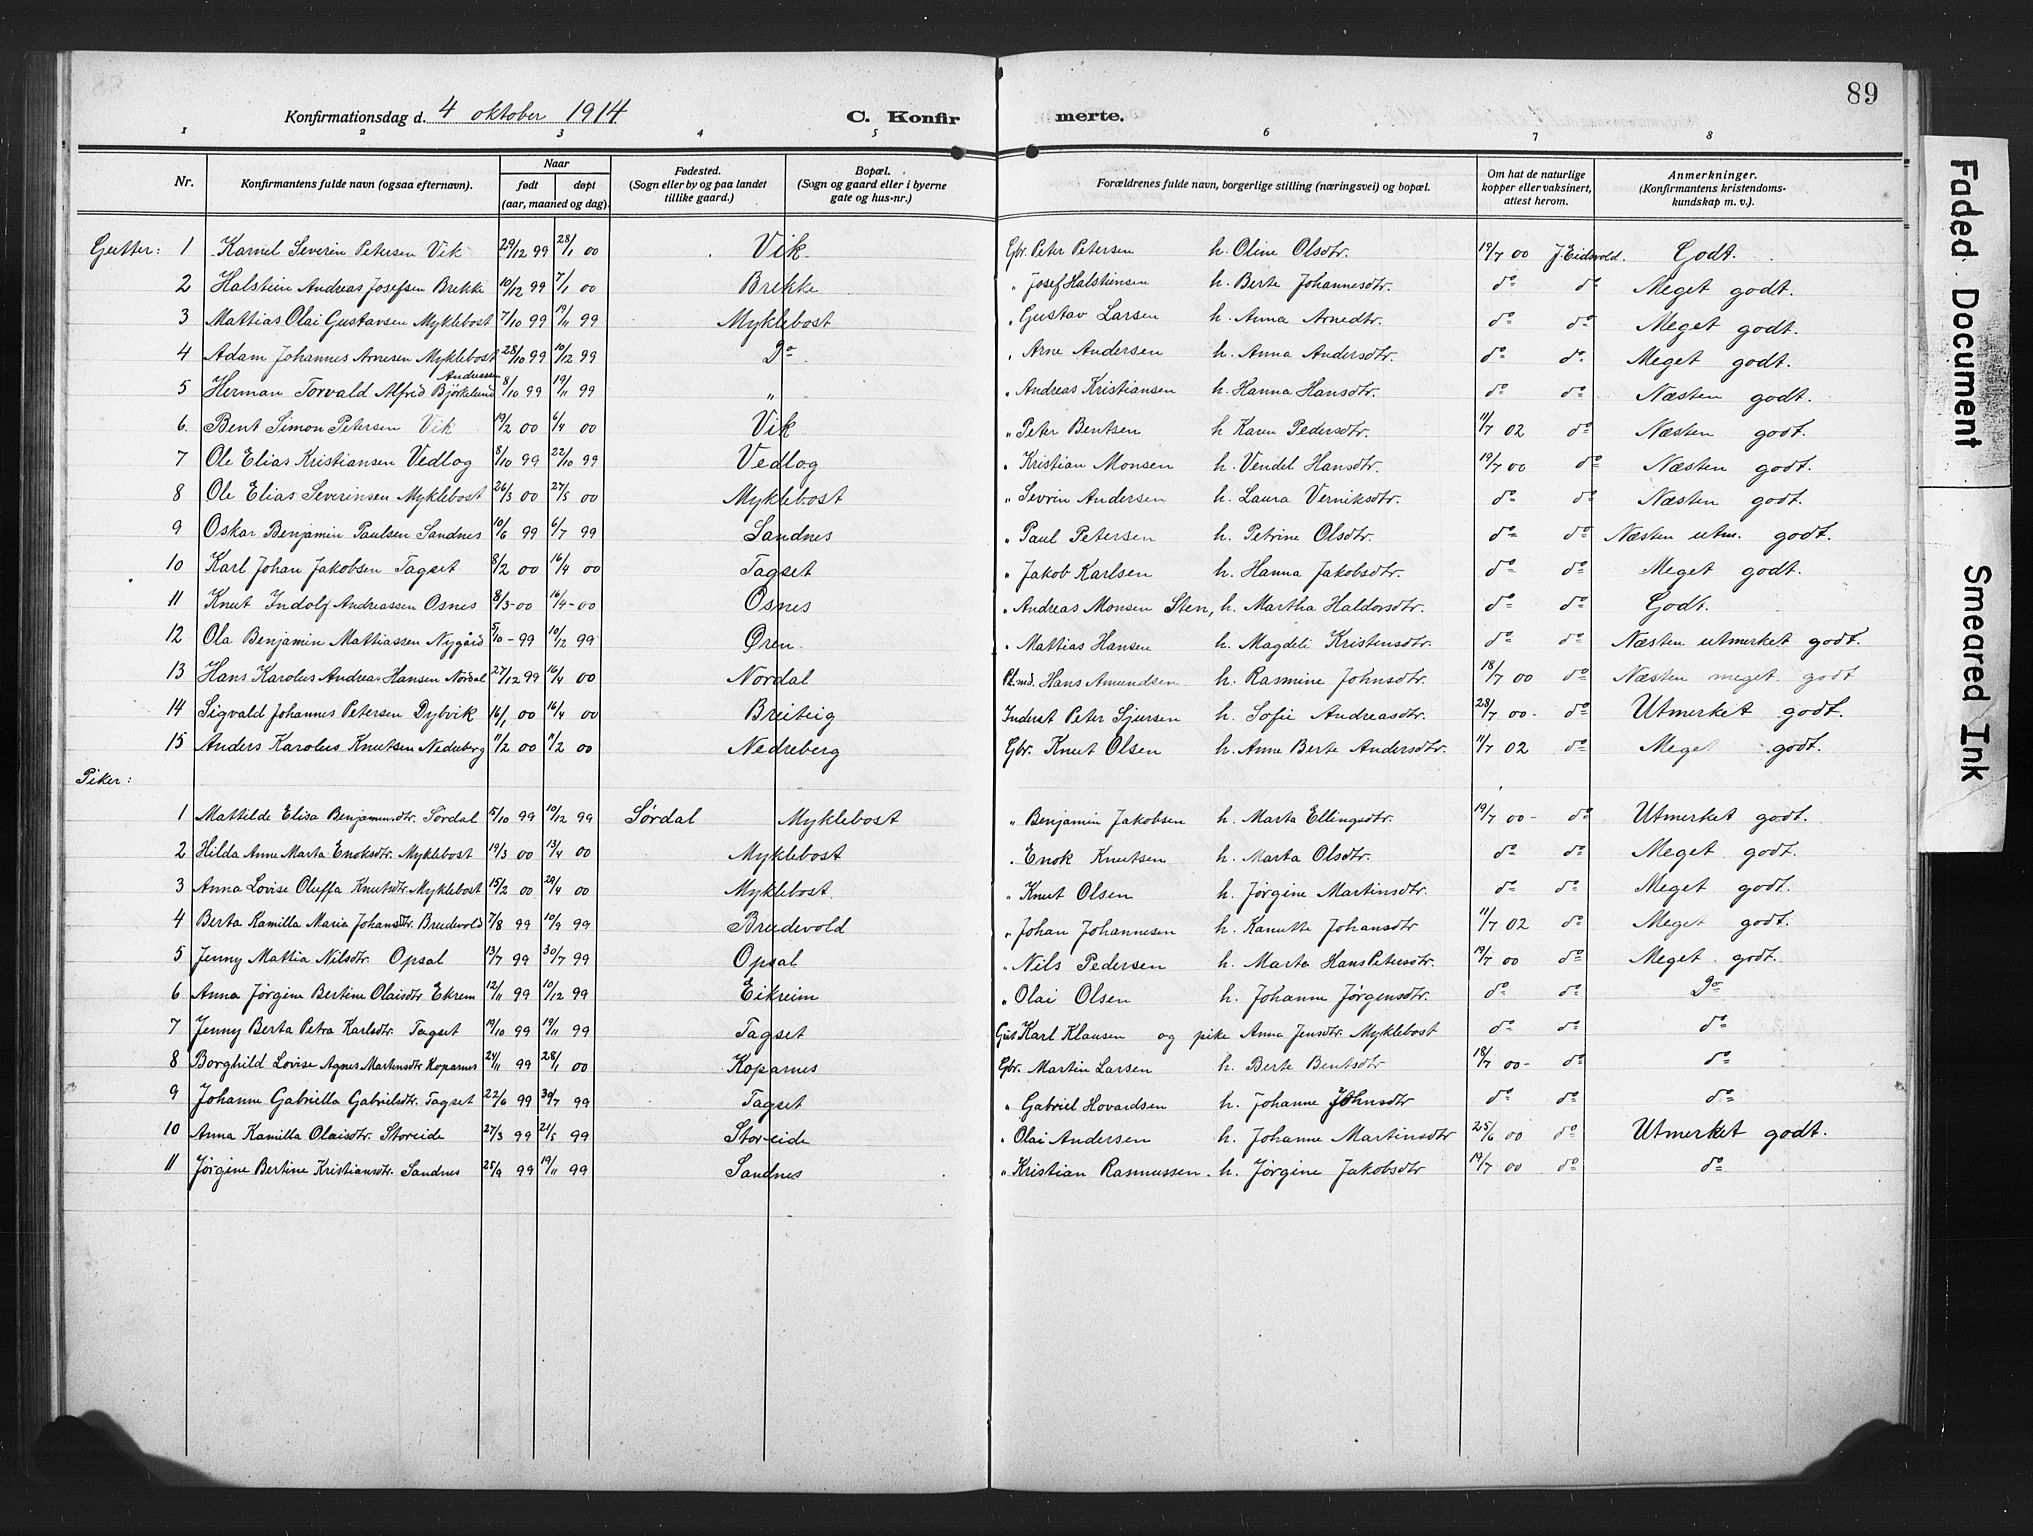 89
Konfirmationsdag d. 4 oktober 1914 C. Konfirmerte.
1 2 3 4 5 6 7 8
Nr. Konfirmantens fulde navn (ogsaa efternavn). Naar født døpt (aar, maaned og dag). Fødested. (Sogn eller by og paa landet tillike gaard.) Bopæl. (Sogn og gaard eller i byerne gate og hus-nr.) Forældrenes fulde navn, borgerlige stilling (næringsvei) og bopæl. Om hat de naturlige kopper eller vaksinert, attest herom. Anmerkninger. (Konfirmantens kristendoms-kundskap m. v.).
Gutter: 1 Karnel Severin Petersen Vik 29/12 99 28/1 00 Vik Gbr. Peter Petersen h. Oline Olsdtr. 19/7 00 J. Eidsvold. Godt.
2 Halstein Andreas Josefsen Brekke 10/12 99 7/1 00 Brekke " Josef Halstensen h. Berte Johannesdtr. do do Meget godt.
3 Mattias Olai Gustavsen Myklebost 7/10 99 19/11 99 Myklebost " Gustav Larsen h. Anna Arnedtr. do do Meget godt.
4 Adam Johannes Arnesen Myklebost 28/10 99 10/12 99 Do " Arne Andersen h. Anna Andersdtr. do do Meget godt.
5 Herman Torvald Alfred Andreassen Bjørkelund 8/10 99 19/11 99 " " Andreas Kristiansen h. Hanna Hansdtr. do do Næsten godt.
6. Bent Simon Petersen Vik 19/2 00 6/4 00 Vik " Peter Bentsen h Karen Pedersdtr. 11/7 02 do Næsten godt.
7 Ole Elias Kristiansen Vedlog 8/10 99 22/10 99 Vedlog " Kristian Monsen h. Vendel Hansdtr. 19/7 00 do Næsten godt.
8 Ole Elias Severinsen Myklebost 26/3 00 27/5 00 Myklebost " Sevrin Andersen h. Laura Verniksdtr. do do Næsten godt.
9 Oskar Benjamin Paulsen Sandnes 10/6 99 6/7 99 Sandnes " Paul Petersen h. Petrine Olsdtr. do do Næsten utm. godt.
10 Karl Johan Jakobsen Tagset 8/2 00 16/4 00 Tagset " Jakob Karlsen h. Hanna Jakobsdtr. do do Meget godt.
11 Knut Indolf Andreassen Osnes 8/3-00 16/4-00 Osnes " Andreas Monsen Sten, h. Martha Haldorsdtr. do do Godt.
12 Ola Benjamin Mattiassen Nygård 5/10-99 10/12 99 Øren " Mattias Hansen h. Magdeli Kristensdtr. do do Næsten utmerket godt.
13 Hans Karolus Andreas Hansen Nordal 27/12 99 16/4 00 Nordal Pl.md. Hans Amundsen h. Rasmine Johnsdtr. 18/7 00 do Næsten meget godt
14 Sigvald Johannes Petersen Dybvik 16/1 00 16/4 00 Breiteig Inderst Peter Sjursen h. Sofie Andreasdtr. 28/7 00- do Utmerket godt.
15 Anders Karolus Knutsen Nedreberg 11/2 00 11/2 00 Nedreberg Gbr. Knut Olsen h. Anne Berte Andersdtr. 11/7 02 do Meget godt.
Piker:
1 Mattilde Elisa Benjaminsdtr. Sørdal 15/10 99 10/12 99 Sørdal Myklebost " Benjamin Jakobsen h. Marta Ellingsdtr. 19/7 00- do Utmerket godt.
2 Hilda Anne Marta Enoksdtr. Myklebost 19/3 00 13/4 00 Myklebost " Enok Knutsen h. Marta Olsdtr. do do Meget godt.
3 Anna Lovise Oluffa Knutsdtr. Myklebost 15/2 00 29/4 00 Myklebost. " Knut Olsen h. Jørgine Martinsdtr. do do Meget godt.
4 Berta Kamilla Maria Johansdtr. Brudevold 7/8 99 10/9 99 Brudevold " Johan Johannesen h. Kanutte Johansdtr 11/7 02 do Meget godt.
5 Jenny Mattia Nilsdtr. Opsal 13/7 99 30/7 99 Opsal " Nils Pedersen h. Marta Hans Petersdtr. 19/7 00 do Meget godt.
6 Anna Jørgine Bertine Olaisdtr Ekrem 12/11 99 10/12 99 Eikreim " Olai Olsen h. Johanne Jørgensdtr. do do Do
7 Jenny Berta Petra Karlsdtr. Tagset 19/10 99 19/11 99 Tagset Gut Karl Klausen og pike Anna Jensdtr. Myklebost do do do
8 Borghild Lovise Agnes Martinsdtr Koparnes 24/11 99 28/1 00 Koparnes Gbr. Martin Larsen h. Berte Bentsdtr 18/7 00- do do
9 Johanne Gabriella Gabrielsdtr. Tagset 22/6 99 30/7 99 Tagset " Gabriel Hovardsen h. Johanne Johnsdtr do do do
10 Anna Kamilla Olaisdtr. Storeide 27/3 99 21/5 99 Storeide " Olai Andersen h. Johanne Martinsdtr 25/6 00 do Utmerket godt.
11 Jørgine Bertine Kristiansdtr. Sandnes 25/9 99 19/11 99 Sandnes " Kristian Rasmussen. h. Jørgine Jakobsdtr 19/7 00 do do
Faded Document
Smeared Ink